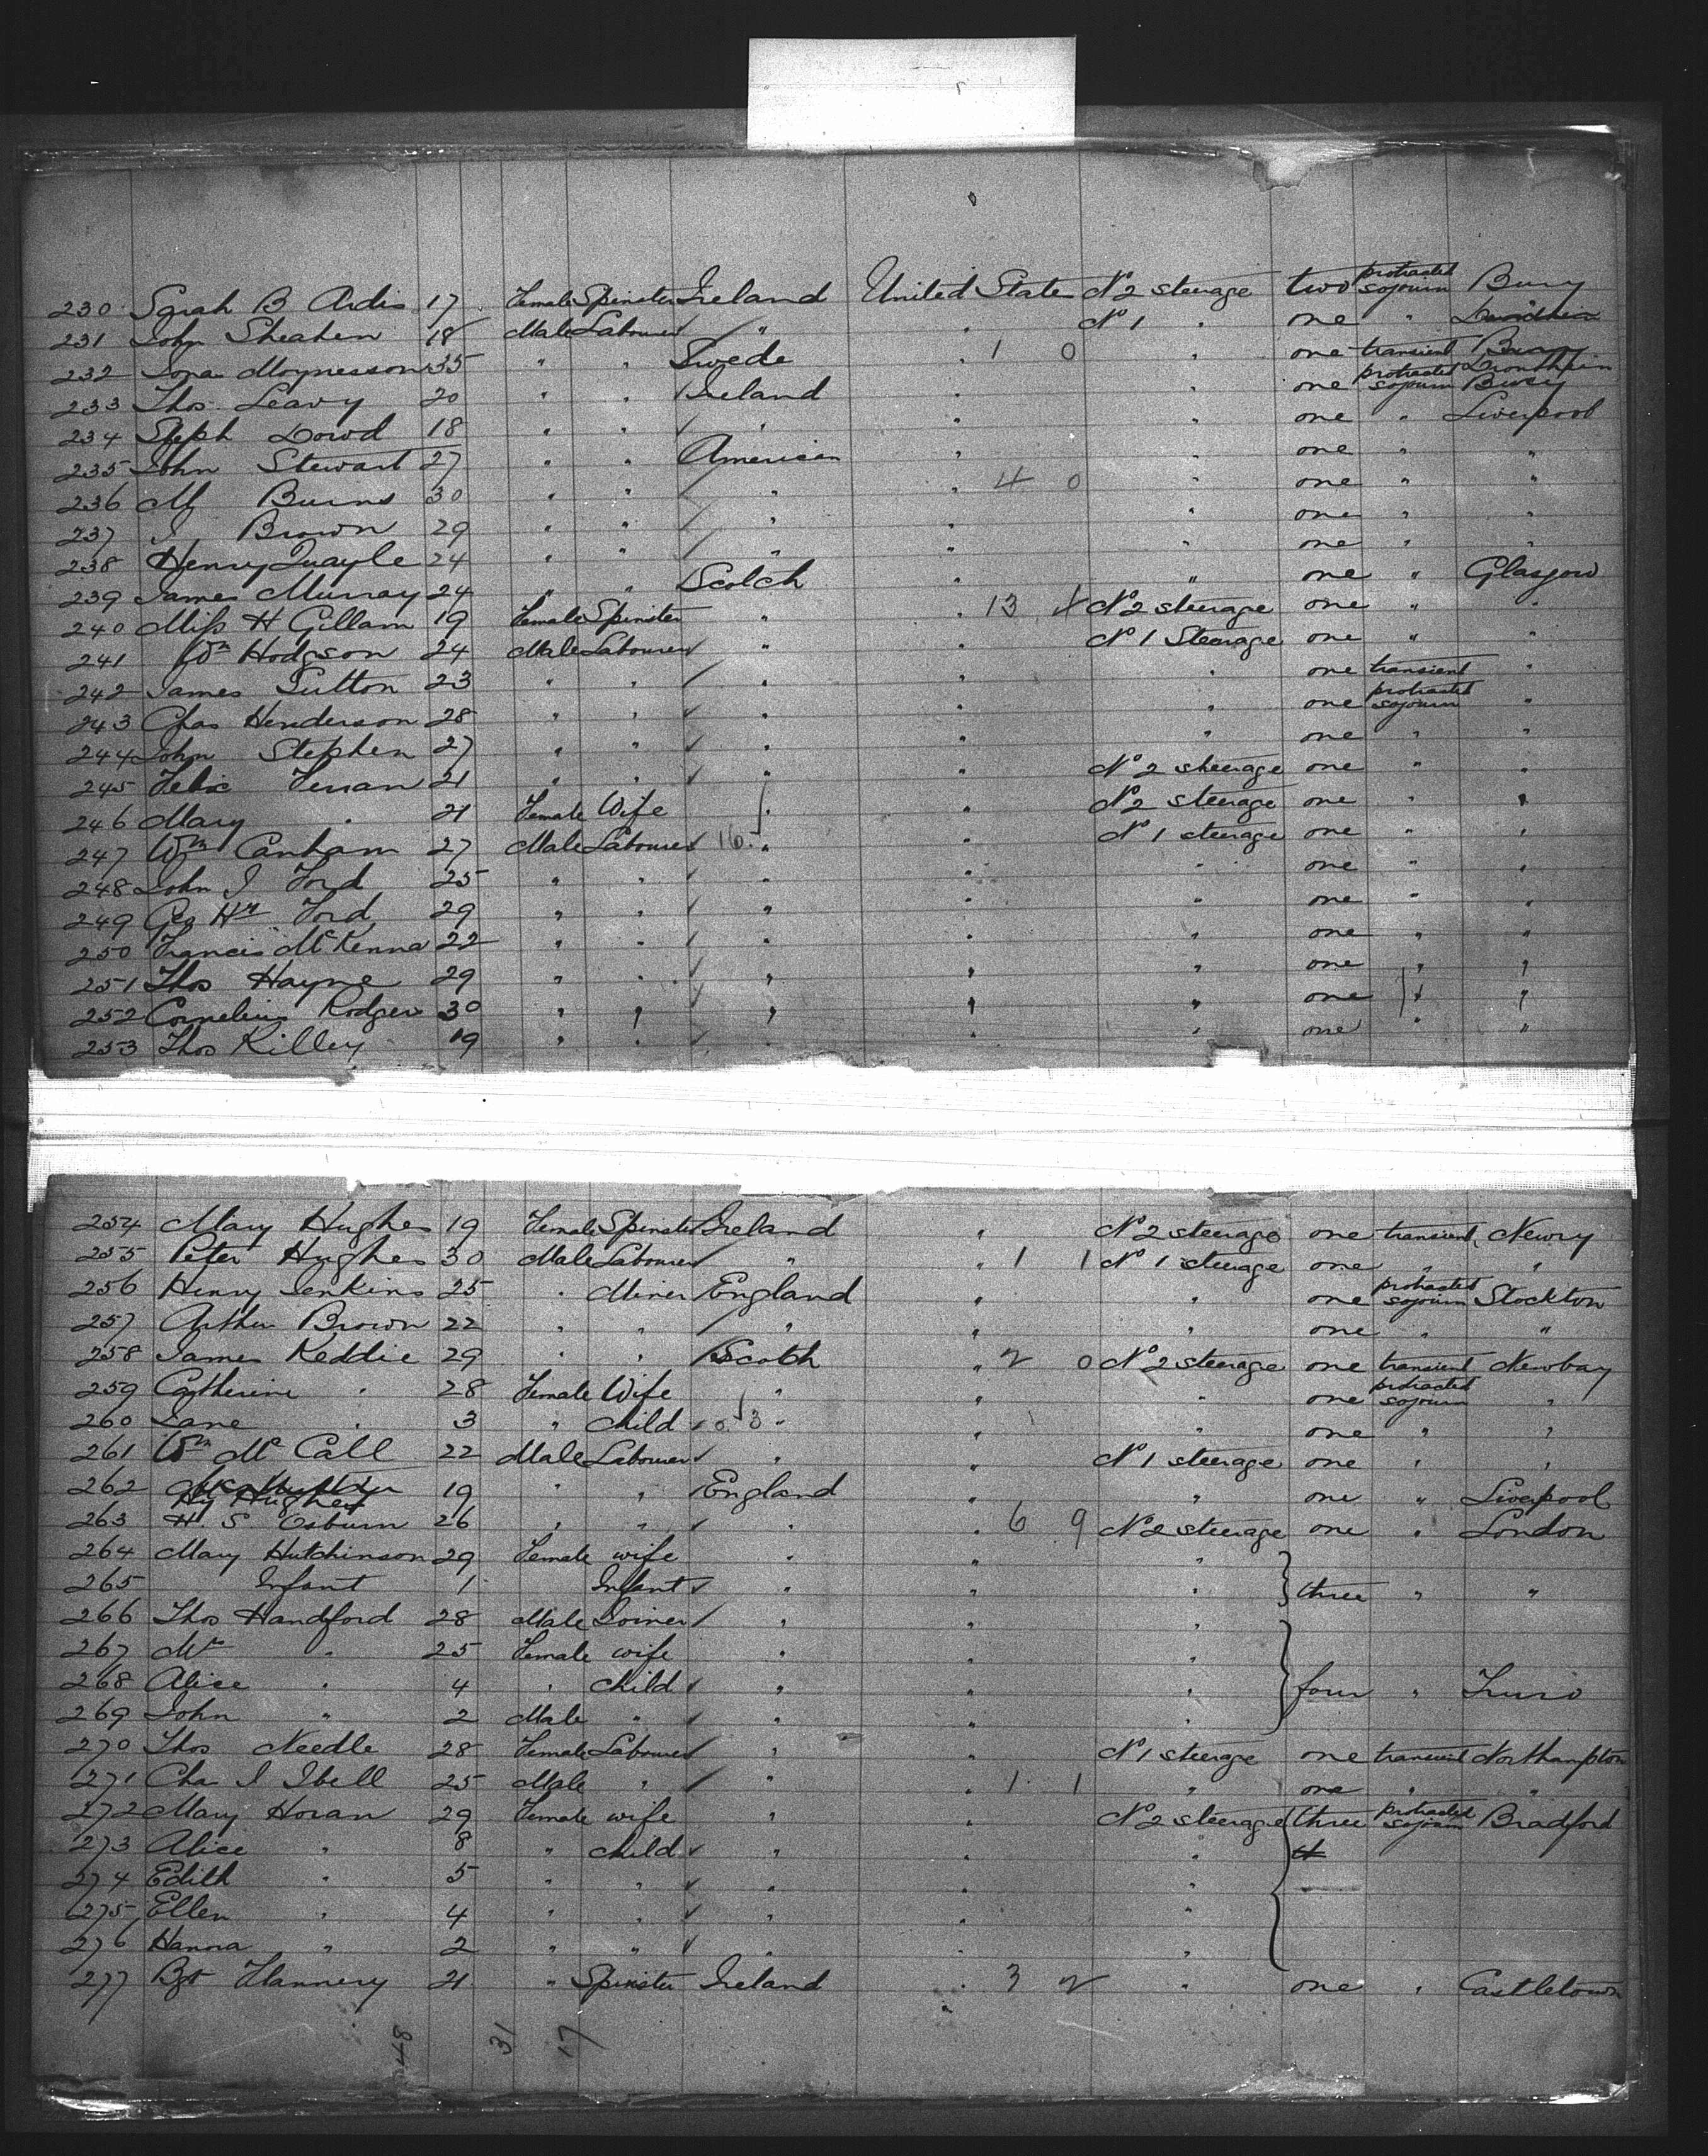 230 Sarah B Ardis 17 Female Spinster Ireland United States No 2 steerage two protracted sojourn Bury
231 John Sheahen 18 Male Labourer " " No 1 " one "
232 Jona Moynesson 35 " " Swede " 1 0 " one transient Drontheim
233 Thos Leavy 20 " " Ireland " " one protracted sojourn Bury
234 Steph Dowd 18 " " " " " one " Liverpool
235 John Stewart 27 " " American " " one " "
236 M Burns 30 " " " " 4 0 " one " "
237 J Brown 29 " " " " " one " "
238 Henry Quayle 24 " " " " " one " "
239 James Murray 24 " " Scotch " " one " Glasgow
240 Miss H Gillam 19 Female Spinster " " 13 4 No 2 steerage one " "
241 Wm Hodgson 24 Male Labourer " " No 1 Steerage one " "
242 James Sutton 23 " " " " " one transient "
243 Chas Henderson 28 " " " " " one protracted sojourn "
244 John Stephen 27 " " " " " one " "
245 Felix Ferran 21 " " " " No 2 steerage one " "
246 Mary " 21 Female Wife " " No 2 steerage one " "
247 Wm Canham 27 Male Labourer 16 " " No 1 steerage one " "
248 John J Ford 25 " " " " " one " "
249 Geo Hy Ford 29 " " " " " one " "
250 Francis McKenna 22 " " " " " one " "
251 Thos Hayne 29 " " " " " one " "
252 Cornelius Rodgers 30 " " " " " one " "
253 Thos Killey 19 " " " " " one " "
254 Mary Hughes 19 Female Spinster Ireland " No 2 steerage one transient Newry
255 Peter Hughes 30 Male Labourer " " 1 1 No 1 steerage one " "
256 Henry Jenkins 25 " Miner England " " one protracted sojourn Stockton
257 Arthur Brown 22 " " " " " one " "
258 James Keddie 29 " " Scotch " 2 0 No 2 steerage one transient Newbay
259 Catherine " 28 Female Wife " " " one protracted sojourn "
260 Jane " 3 " Child 3 " " " one " "
261 Wm McCall 22 Male Labourer " " No 1 steerage one " "
262 Hy Hughes 19 " " England " " one " Liverpool
263 H. S Osburn 26 " " " " 6 9 No 2 steerage one " London
264 Mary Hutchinson 29 Female wife " " "
265 Infant 1 Infant " " " three " "
266 Thos Handford 28 Male Joiner " " "
267 Mrs " 25 Female wife " " "
268 Alice " 4 " child " " " four " Truro
269 John " 2 Male " " " "
270 Thos Needle 28 Female Labourer " " No 1 steerage one transient Northampton
271 Cha J Ibell 25 Male " " " 1 1 " one " "
272 Mary Horan 29 Female wife " " No 2 steerage three protracted sojourn Bradford
273 Alice " 8 " child " " "
274 Edith " 5 " " " " "
275 Ellen " 4 " " " " "
276 Hanora " 2 " " " " "
277 Bgt Flannery 21 " Spinster Ireland " 3 2 " one " Castletown
48 31 17